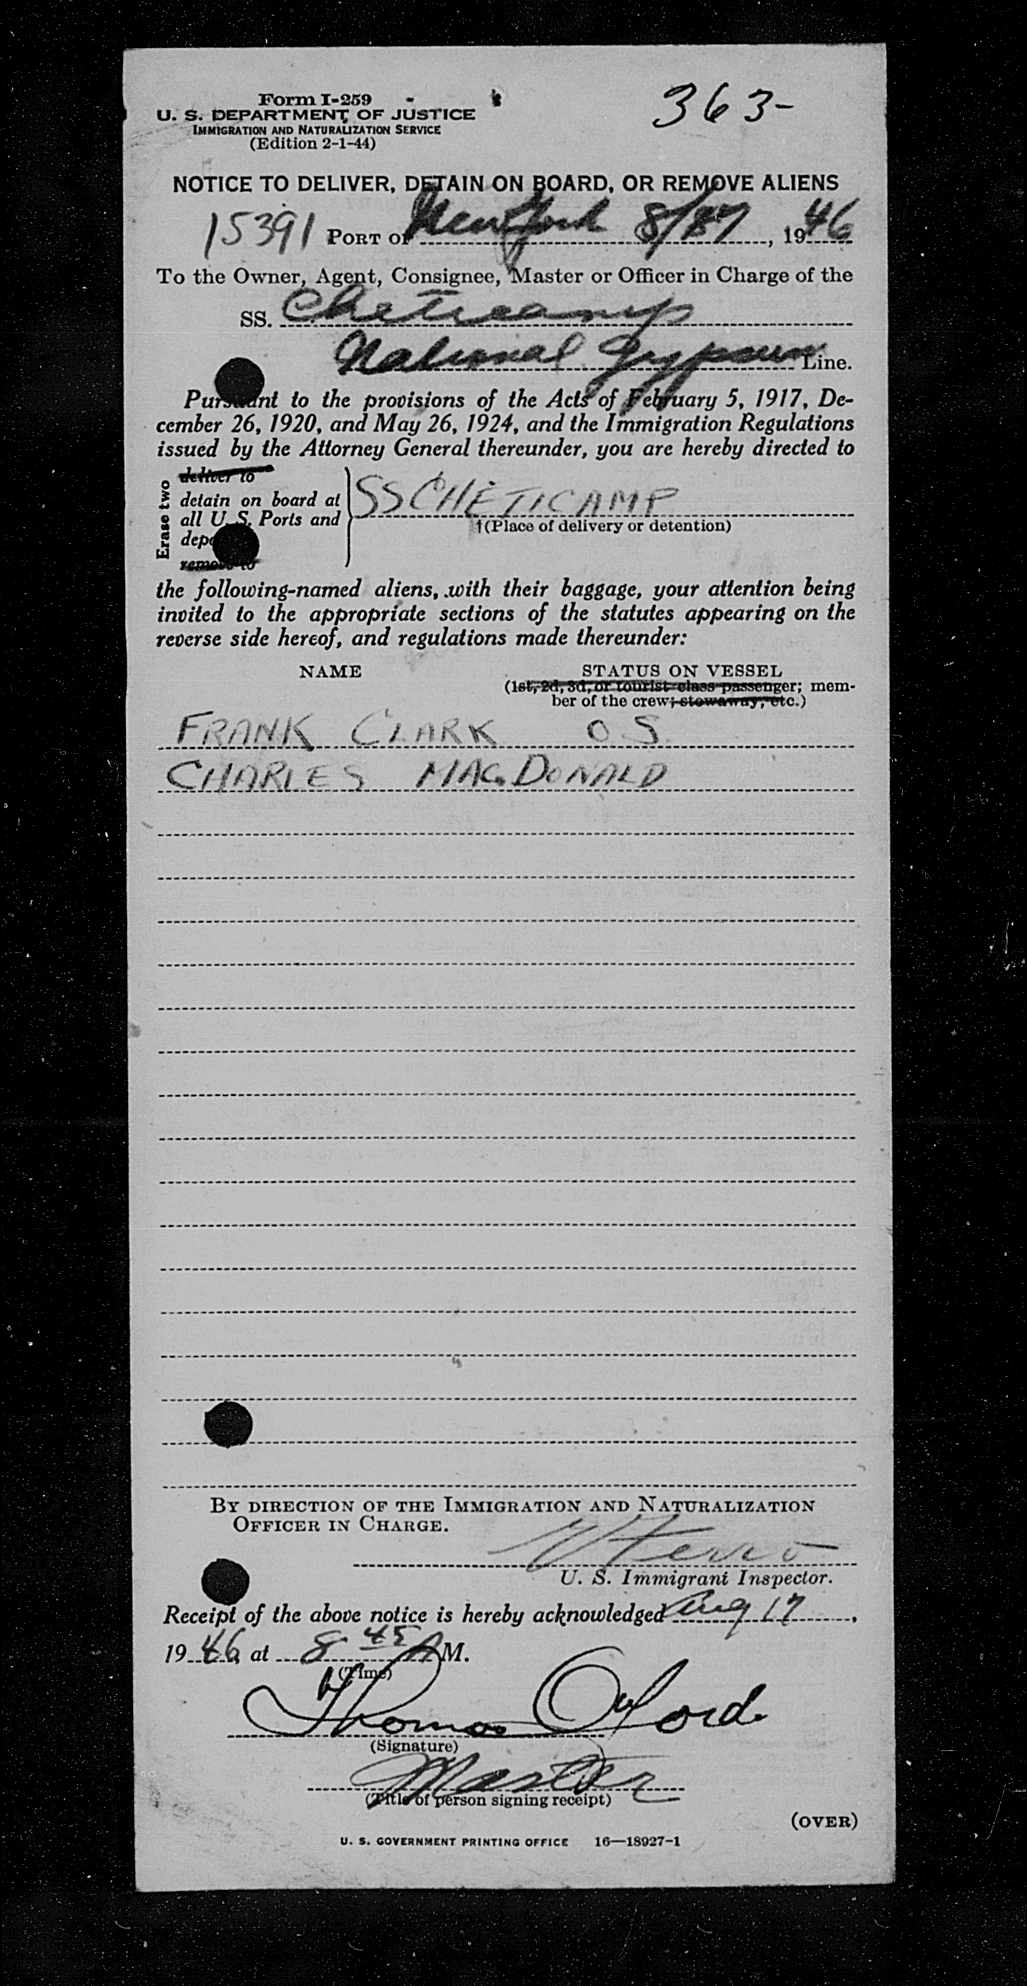 Form I-259
U. S. DEPARTMENT OF JUSTICE
IMMIGRATION AND NATURALIZATION SERVICE
(Edition 2-1-44)
363-
NOTICE TO DELIVER, DETAIN ON BOARD, OR REMOVE ALIENS
15391 PORT OF New York 8/17, 1946
To the Owner, Agent, Consignee, Master or Officer in Charge of the
SS. Cheticamp
National Gypsum Line.
Pursuant to the provisions of the Acts of February 5, 1917, De-
cember 26, 1920, and May 26, 1924, and the Immigration Regulations
issued by the Attorney General thereunder, you are hereby directed to
Erase two
deliver to
detain on board at
all U. S. Ports and
remove to
SS CHETICAMP
†(Place of delivery or detention)
the following-named aliens, with their baggage, your attention being
invited to the appropriate sections of the statutes appearing on the
reverse side hereof, and regulations made thereunder:
NAME STATUS ON VESSEL
(1st, 2d, 3d, or tourist class passenger; mem-
ber of the crew; stowaway, etc.)
FRANK CLARK O.S.
CHARLES MACDONALD
BY DIRECTION OF THE IMMIGRATION AND NATURALIZATION
OFFICER IN CHARGE.
U. S. Immigrant Inspector.
Receipt of the above notice is hereby acknowledged Aug 17,
1946 at 8 45 A M.
(Time)
Thomas Oxford
(Signature)
Master
(Title of person signing receipt)
(OVER)
U. S. GOVERNMENT PRINTING OFFICE 16—18927-1